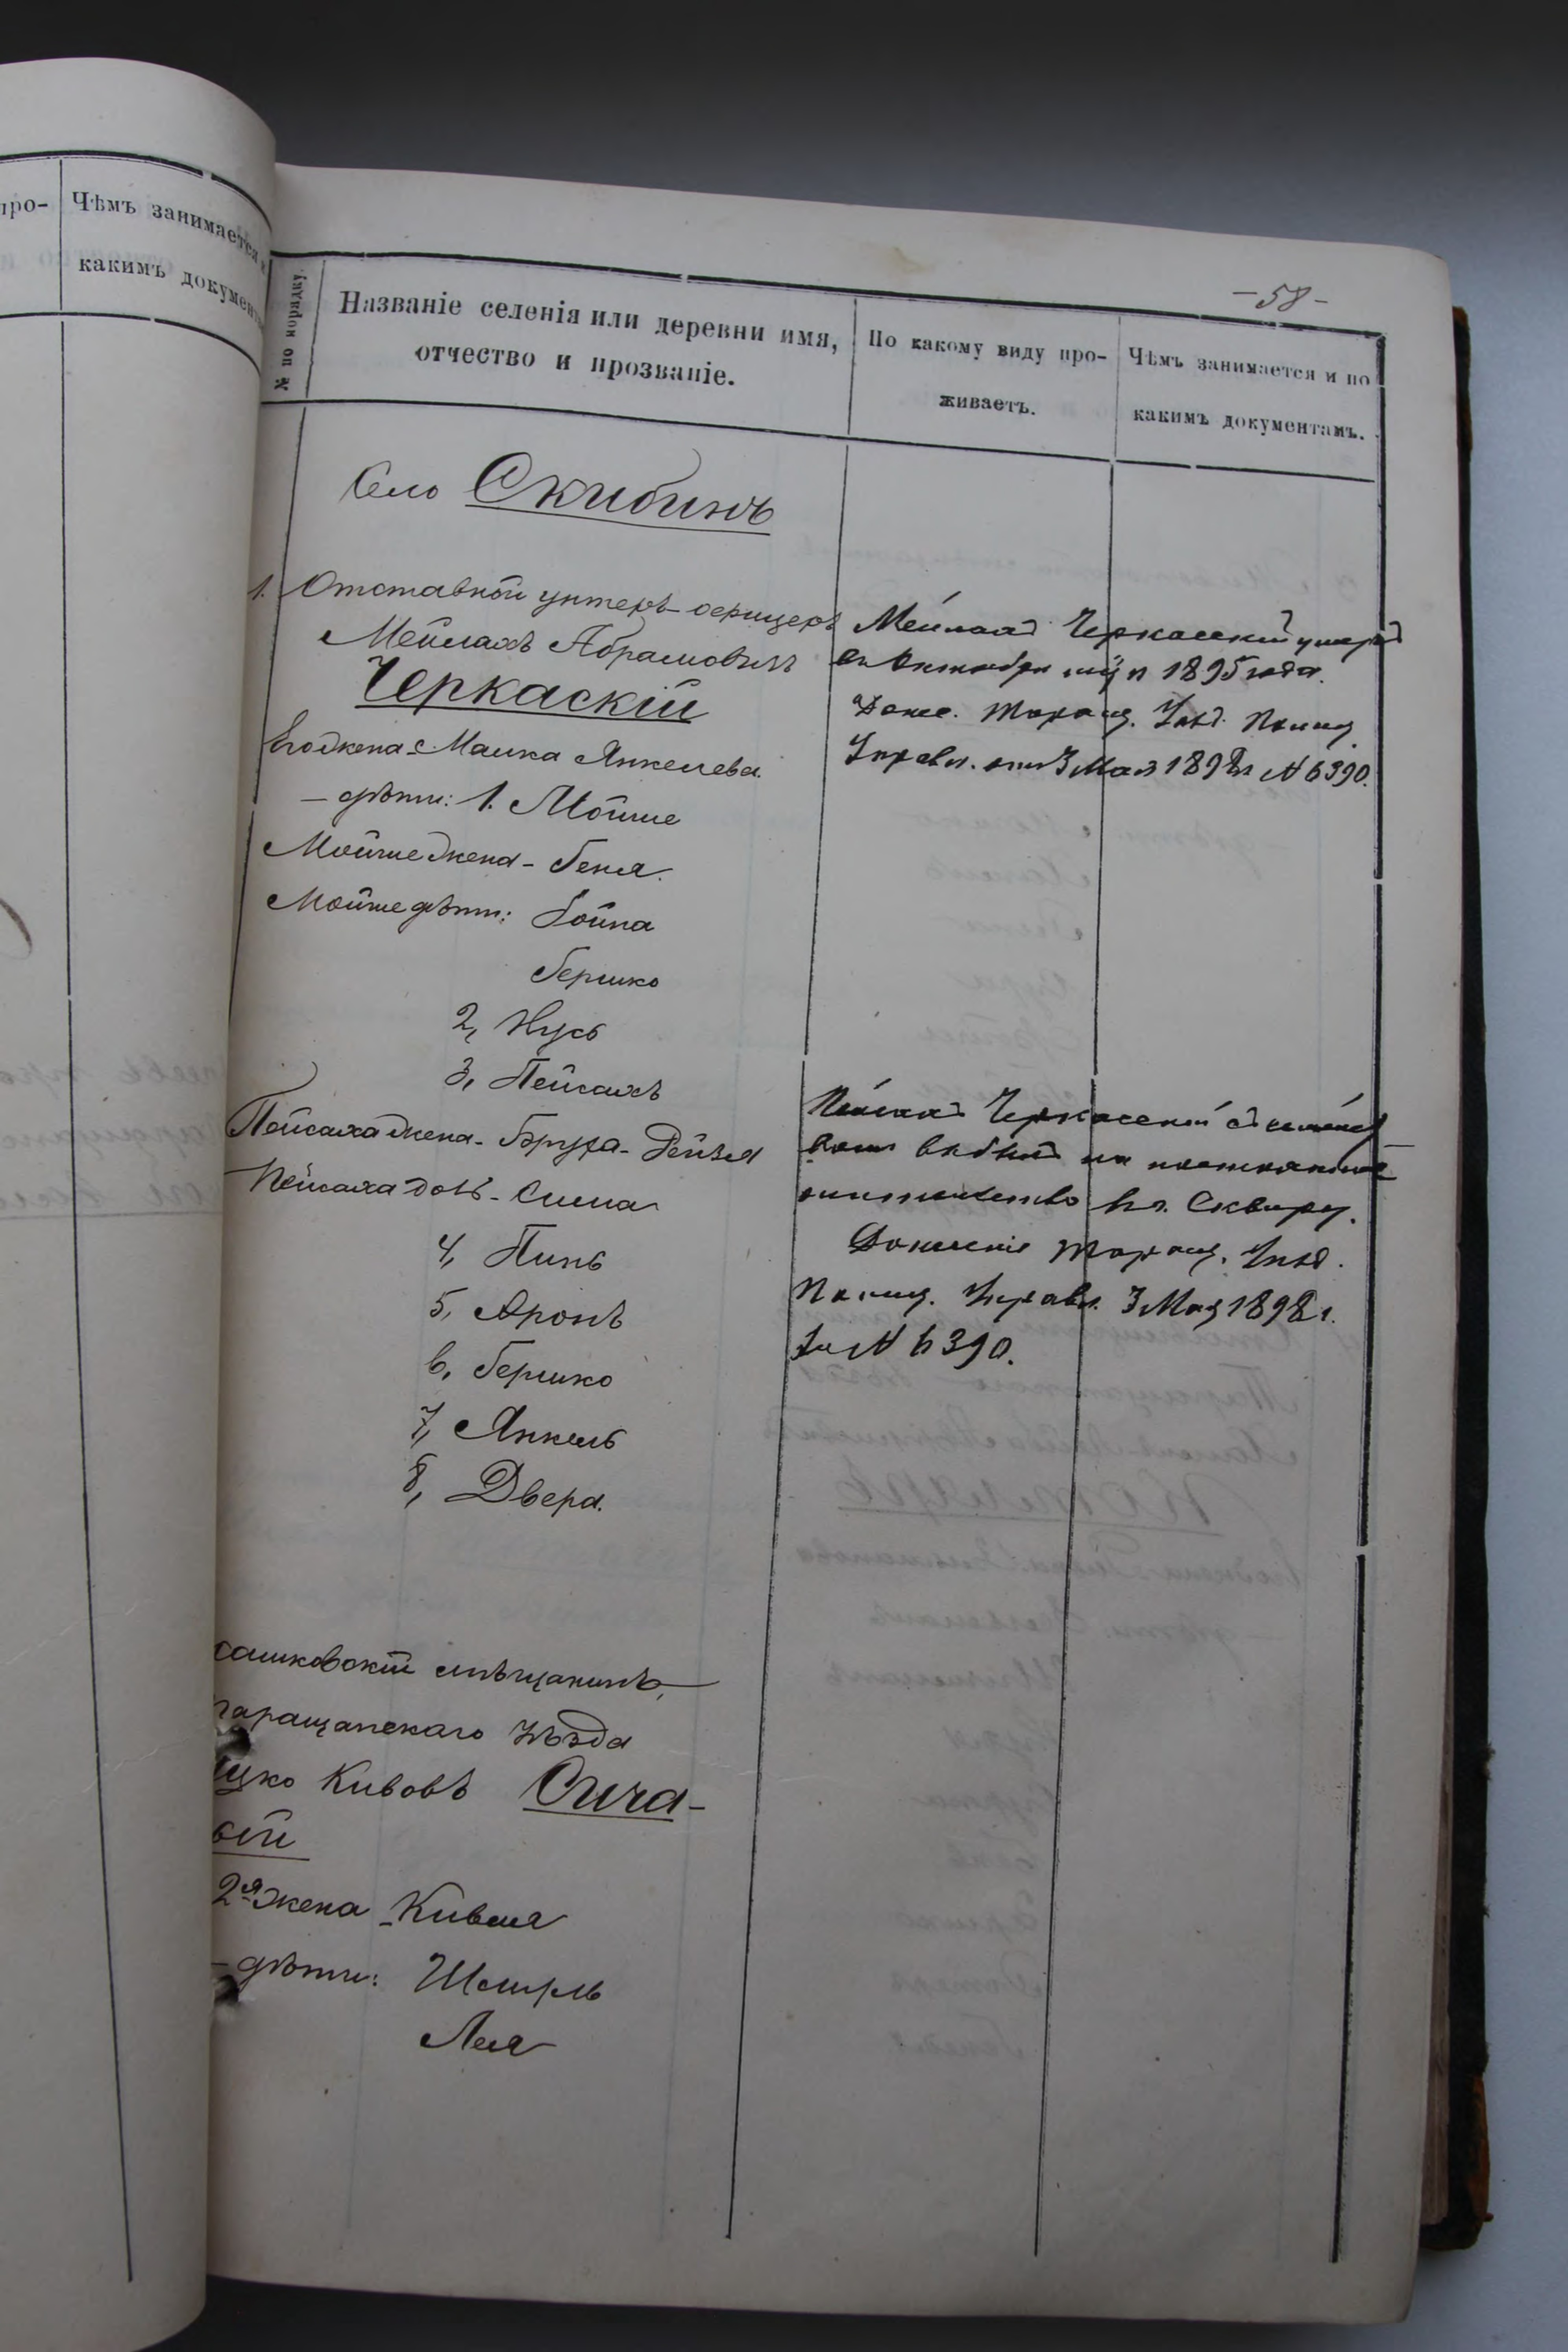 про-
Чѣмъ занимается
какимъ докумен
-58-
№ по порядку.
Названіе селенія или деревни имя,
отчество и прозваніе.
По какому виду про-
живаетъ.
Чѣмъ занимается и по
какимъ документамъ.
Село Скибинъ
1. Отставной унтеръ-офицеръ
Мейлахъ Абрамовичъ
Черкаскій
Его жена - Малка Янкелева
- дѣти: 1. Мойше
Мойше жена - Беня.
Мойше дѣти:
Бершко
2, Нусь
3, Пейсахъ
Пейсаха жена - Бруха - Дейзя
Пейсаха дочь - Сима
4, Пинь
5, Аронъ
6, Бершко
7, Янкель
8, Двера.
Мейлахъ Черкасскій умеръ
въ Октябрѣ м-цѣ 1895 года.
Донес. Таращ. Уѣзд. Полиц.
Управл. отъ 3 Мая 1898 г. № 6390.
Пейсахъ Черкасскій съ семей
вомъ выбылъ на постоянное
жительство въ г. Сквиру.
Донесеніе Таращ. Уѣзд.
Полиц. Управл. 3 Мая 1898 г.
за № 6390.
сашковскій мѣщанинъ,
таращанскаго уѣзда
цко Кивовъ Сича-
вій
2я жена - Кивля
- дѣти: Шмиль
Лея